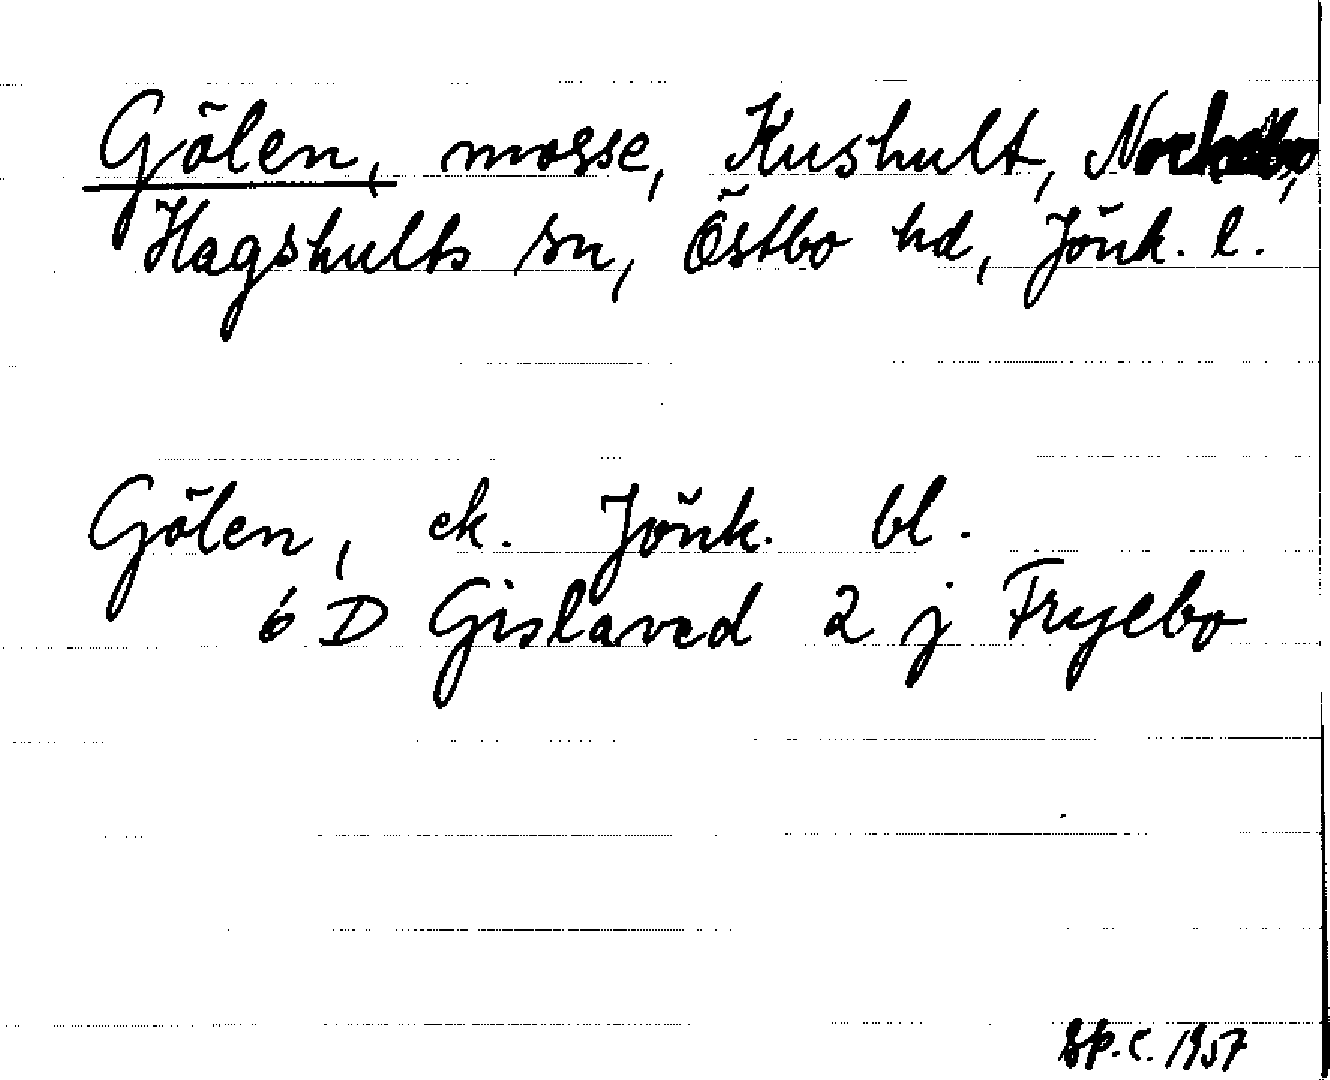 Gölen, mosse, Kushult,
Hagshults sn, Östbo hd, Jönk. l.
Gölen, ek. Jönk. bl.
6 D Gislaved 2 j Fryebo
1957